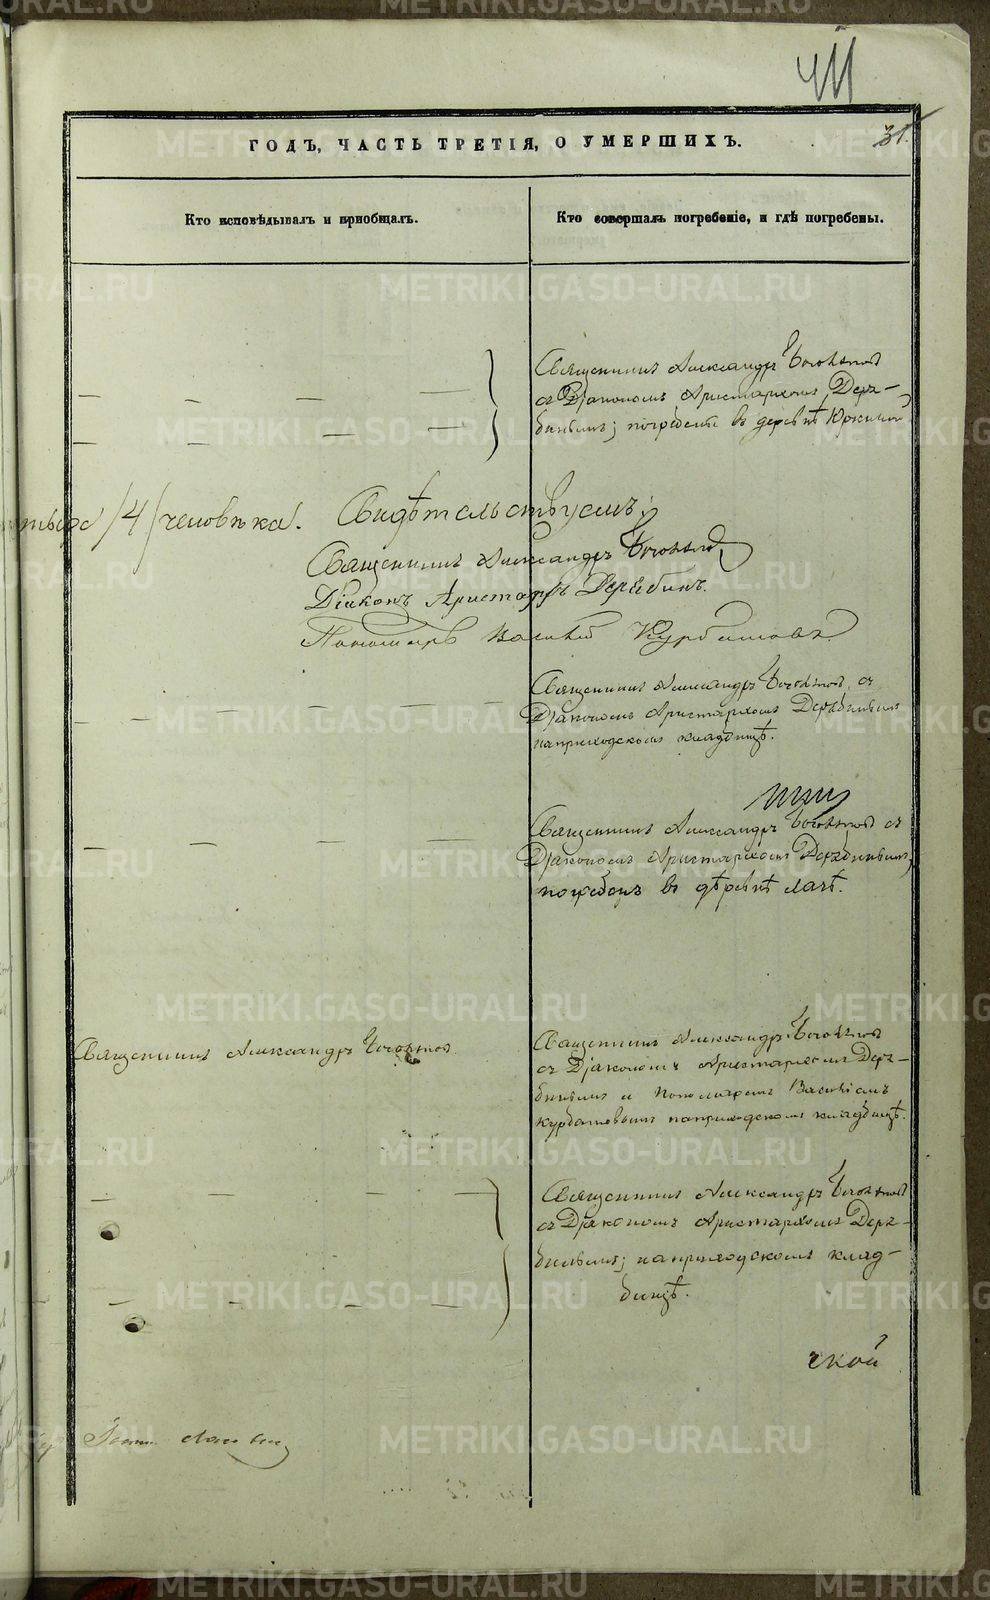 31.
ГОДЪ, ЧАСТЬ ТРЕТІЯ, О УМЕРШИХЪ.
Кто исповѣдывалъ и пріобщалъ.
Кто совершалъ погребеніе, и гдѣ погребены.
Священникъ Александръ
съ Діакономъ Аристархомъ Деря-
бинымъ; погребены въ деревнѣ
/4/ человѣка. Свидѣтельствуемъ:
Священникъ Александръ
Діаконъ Аристархъ Дерябинъ.
Пономарь Василій Курбатовъ
Священникъ Александръ съ
Діакономъ Аристархомъ Дерябинымъ
на приходскомъ кладбищѣ.
Священникъ Александръ съ
Діакономъ Аристархомъ Дерябинымъ,
погребенъ въ дѣревнѣ Лачѣ.
Священникъ Александръ
Священникъ Александръ
съ Діакономъ Аристархомъ Деря-
бинымъ и Пономаремъ Василіемъ
Курбатовымъ на приходскомъ кладбищѣ.
Священникъ Александръ
съ Діакономъ Аристархомъ Деря-
бинымъ; на приходскомъ клад-
бищѣ.
ской
METRIKI.GASO-URAL.RU